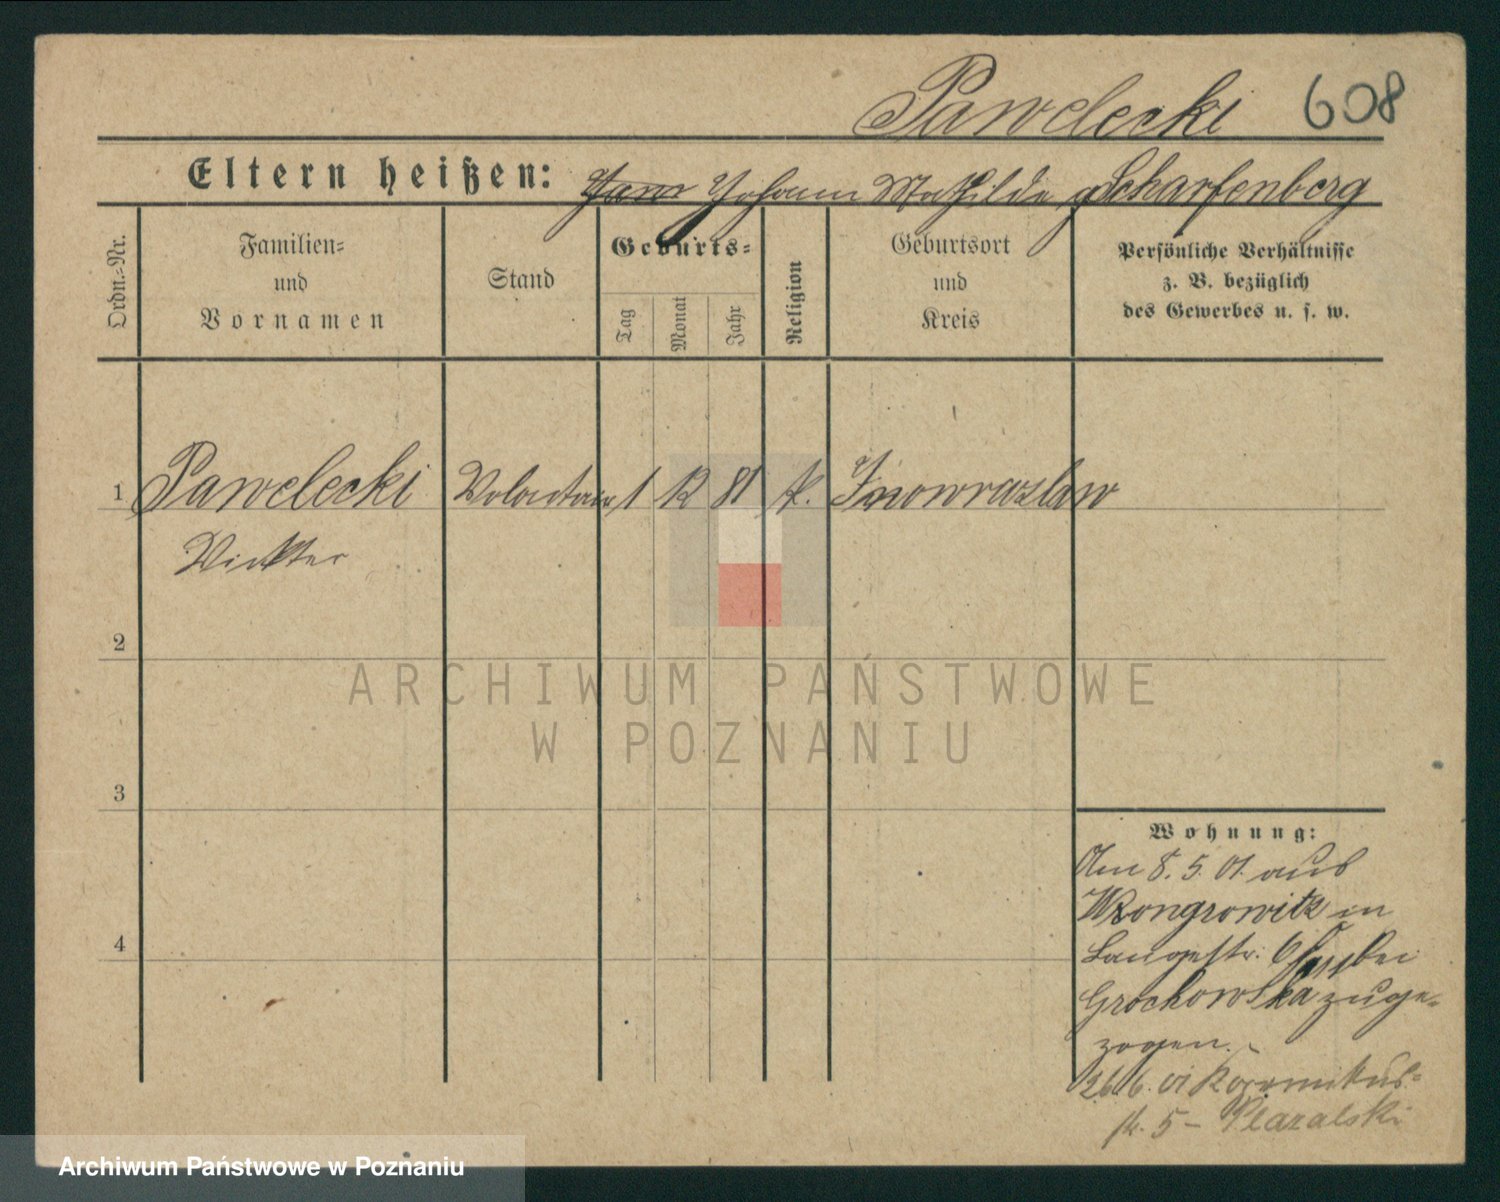 Pawelecki 608
Eltern heißen: Johann Mathilde g Scharfenberg
Ordn.-Nr.
Familien-
und
Vornamen
Stand
Geburts-
Tag
Monat
Jahr
Religion
Geburtsort
und
Kreis
Persönliche Verhältnisse
z. B. bezüglich
des Gewerbes u. s. w.
1 Pawelecki Volontair 1 12 81 k. Inowrazlaw
Victter
2
3
4
Wohnung:
Am 8. 5. 01. aus
Wrongrowitz in
Langestr. 6 bei
Grochowska zuge-
zogen.
26.6.01
5 -
ARCHIWUM PAŃSTWOWE
W POZNANIU
Archiwum Państwowe w Poznaniu